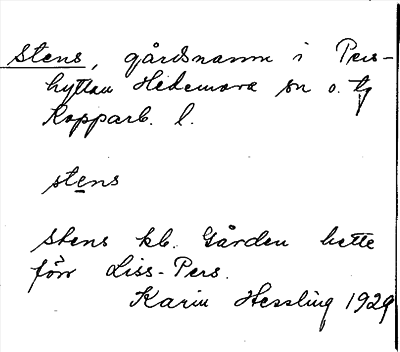 Stens, gårdsnamn i Pers-
hyttan Hedemora sn o. tg
Kopparb. l.
stens
Stens kb. Gården hette
förr Liss-Pers.
Karin Hessling 1929